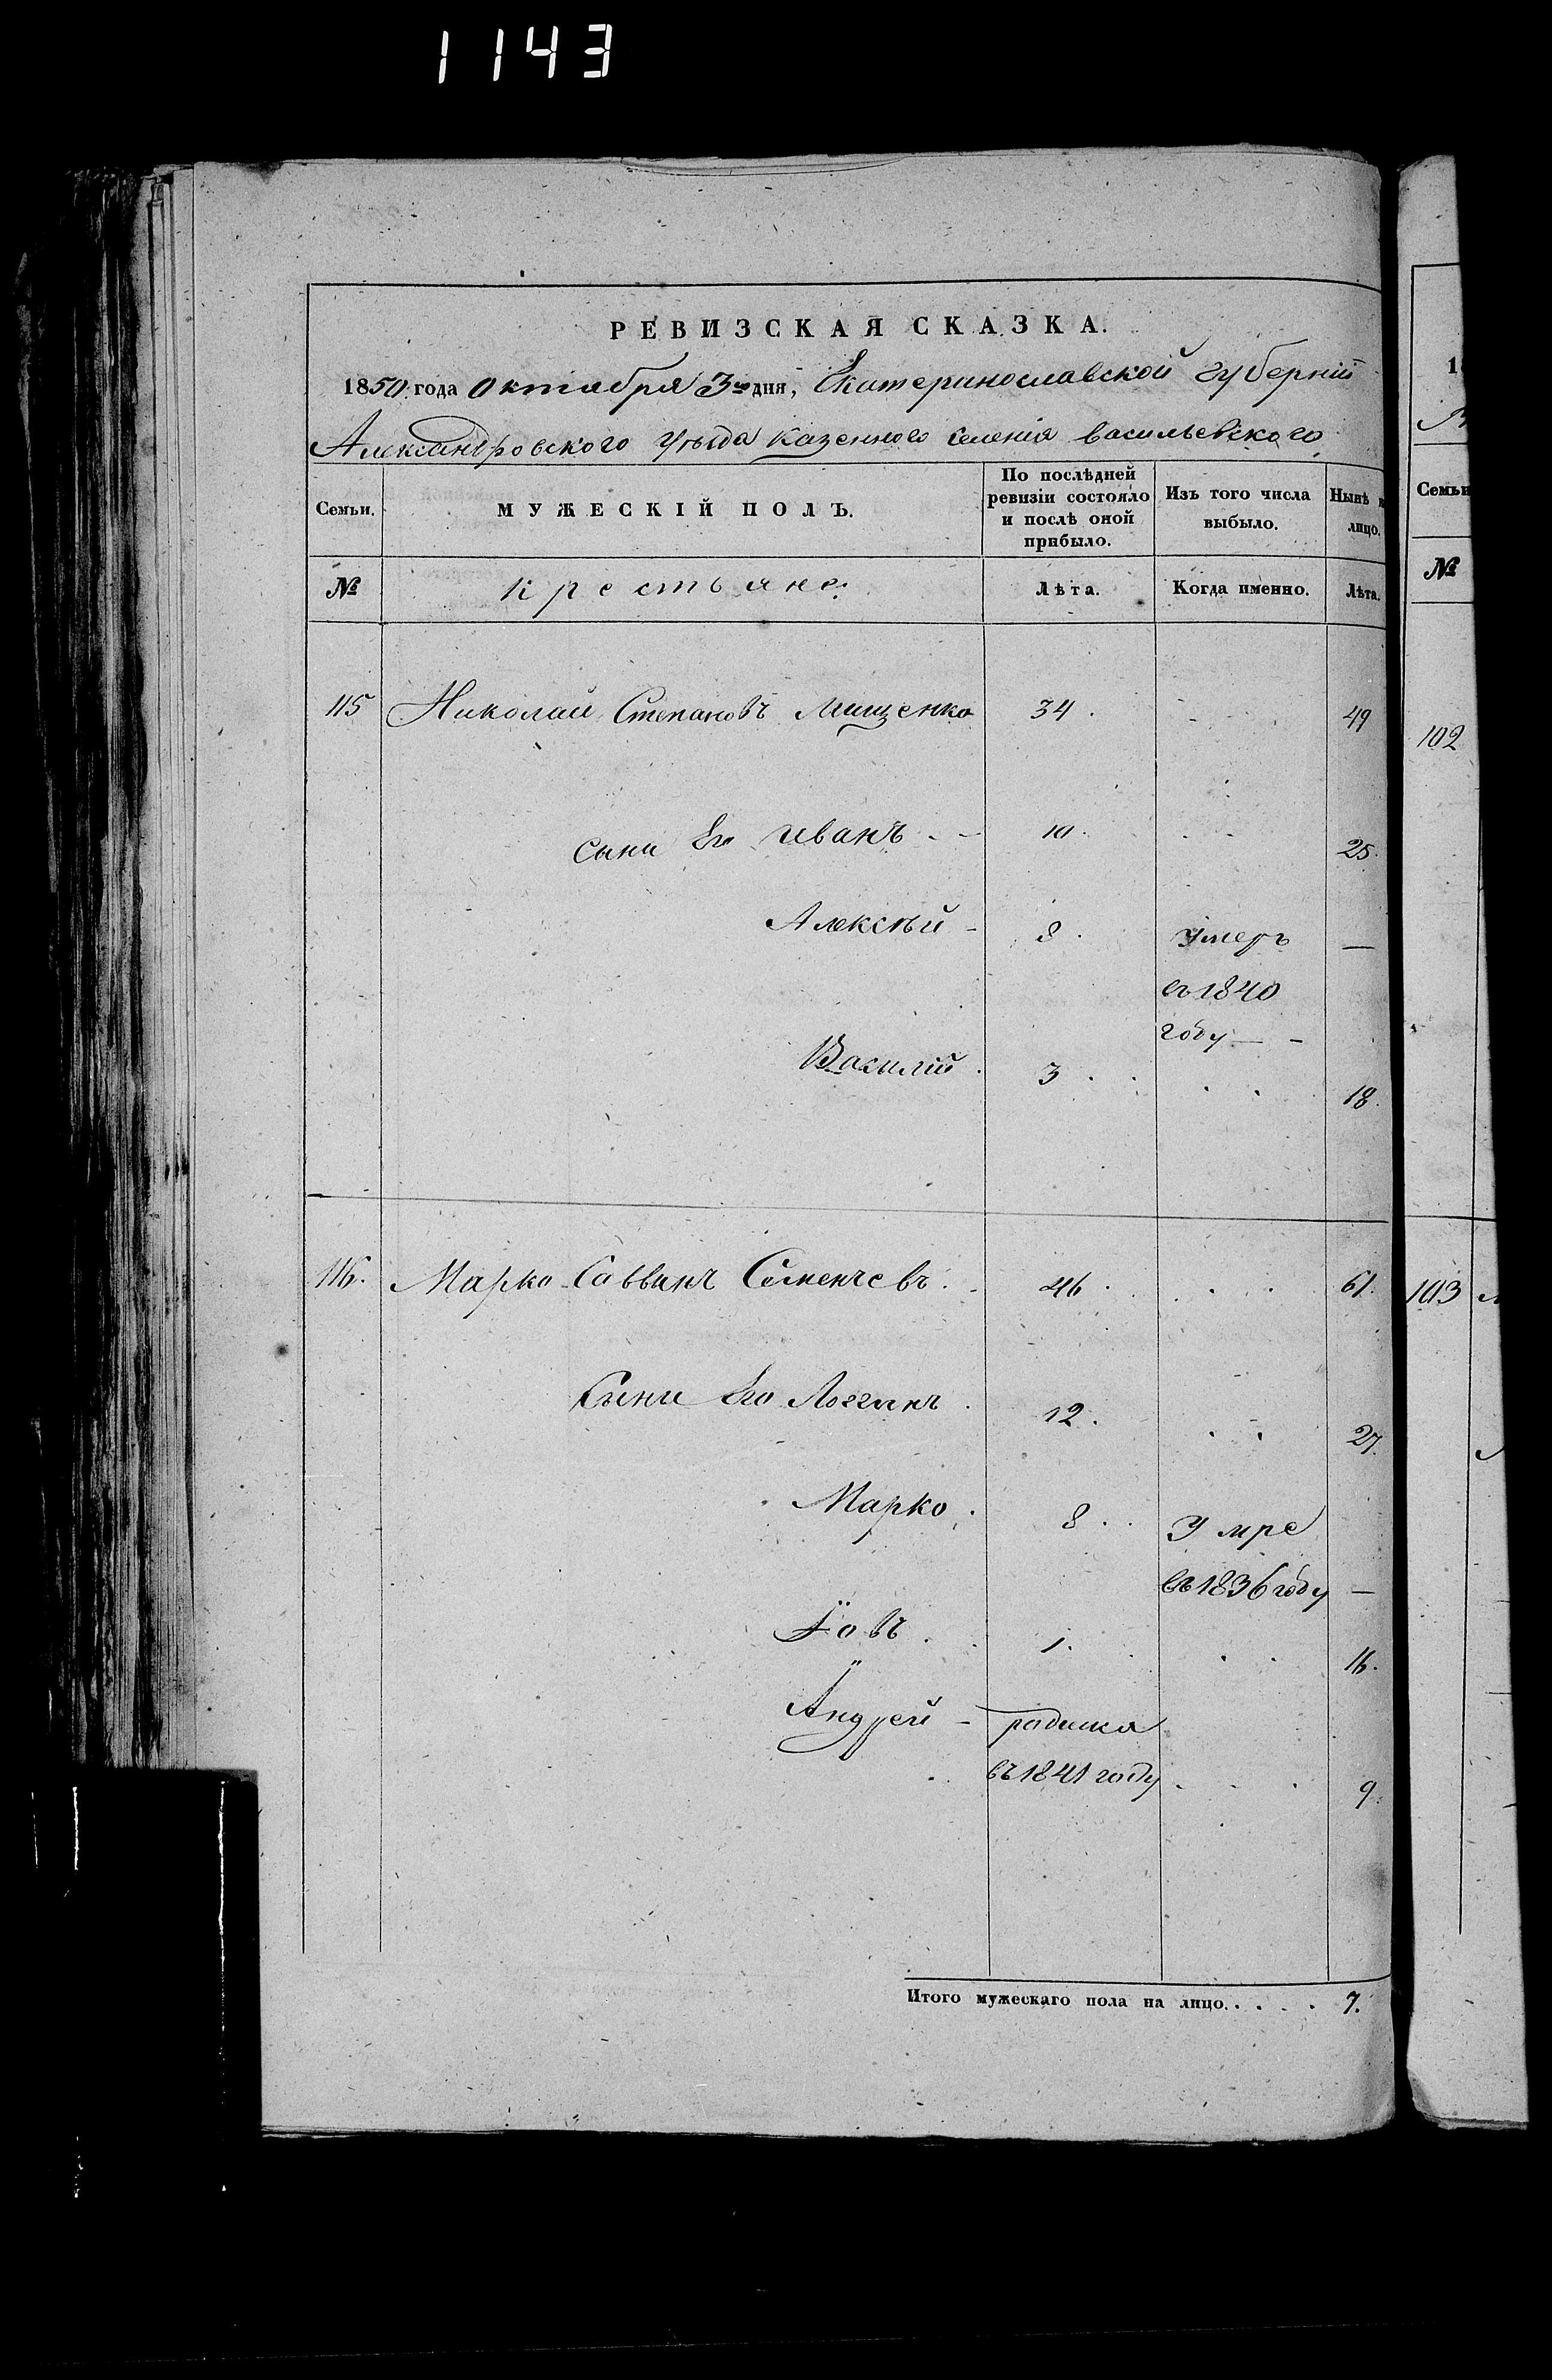 1143
РЕВИЗСКАЯ СКАЗКА.
1850 года октября 3го дня, Екатеринославской губерніи
Александровского уезда казенного селенія васильевского
Семьи. МУЖЕСКІЙ ПОЛЪ. По послѣдней ревизіи состояло и послѣ оной прибыло. Изъ того числа выбыло. Нынѣ лицо.
№ крестьяне: Лѣта. Когда именно. Лѣта.
115 Николай Степановъ Мищенко 34. 49
сыни Его иванъ 10. 25.
Алексѣй 8. умеръ —
въ 1840
году
Василій 3 18.
116. Марко Саввинъ Семенчевъ 46. 61.
Сыни Его Логгинъ 12. 27.
Марко 8 Умре
въ 1836 году —
Іовъ 1. 16.
Андрей родился
въ 1841 году 9.
Итого мужескаго пола на лицо. 7.
Семьи
№
102
103